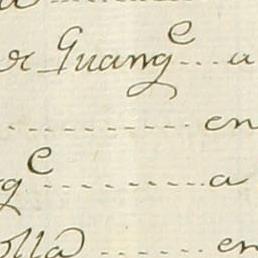 de Guang^e... a
............... en
g^e............ a
olla ...... en